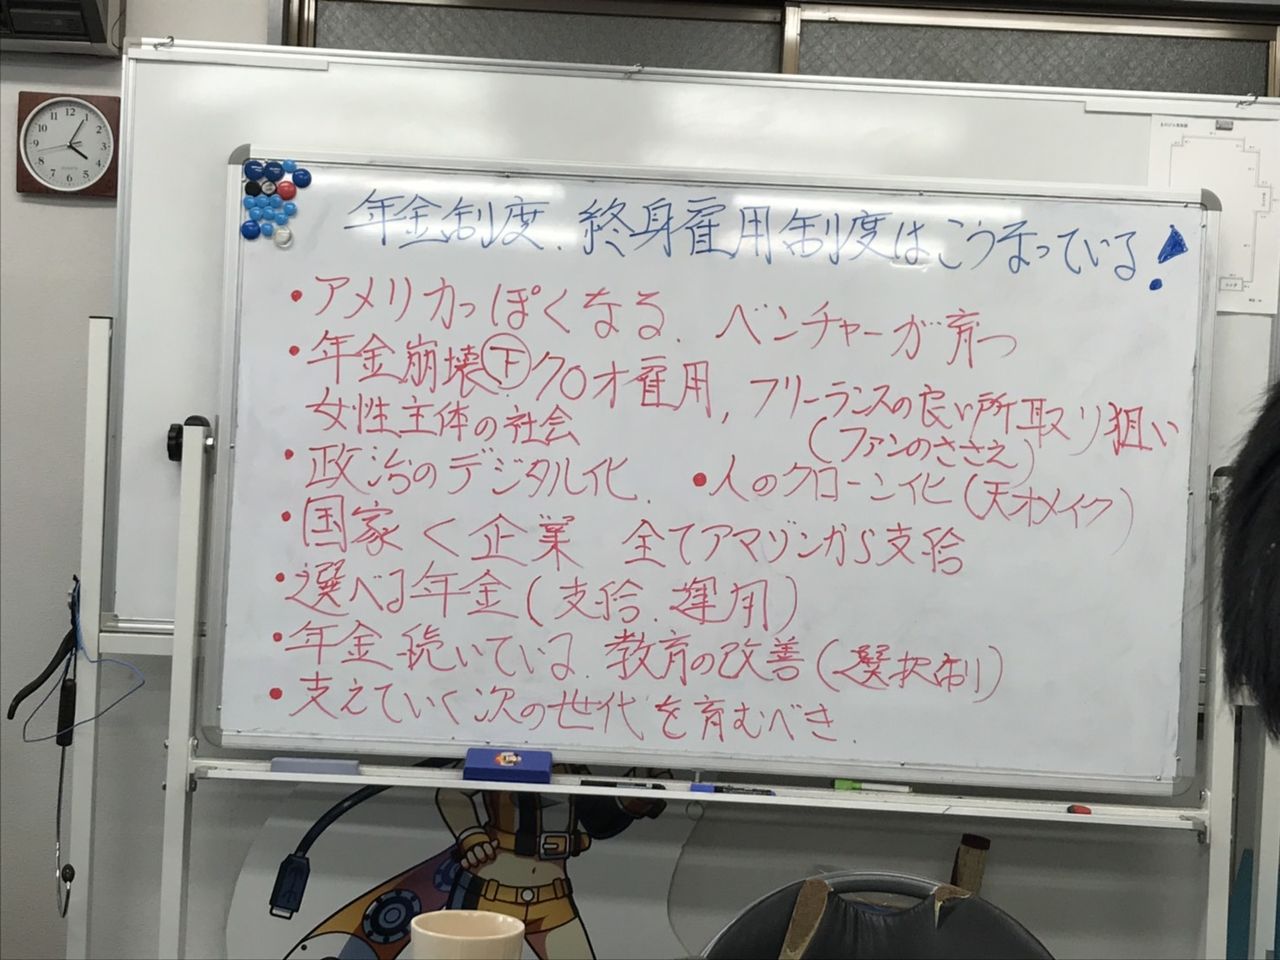 年金制度、終身雇用制度はこうなっている!
・アメリカっぽくなる、ベンチャーが育つ
・年金崩壊下クロオ雇用,フリーランスの良い所取り狙い
女性主体の社会(ファンのささえ)
・政治のデジタル化、・人のクローン化(天才メイク)
・国家<企業 全てアマゾンから支給
・選べる年金(支給、運用)
・年金続いている、教育の改善(選択制)
・支えていく次の世代を育むべき.
12
1
2
3
4
5
6
7
8
9
10
11